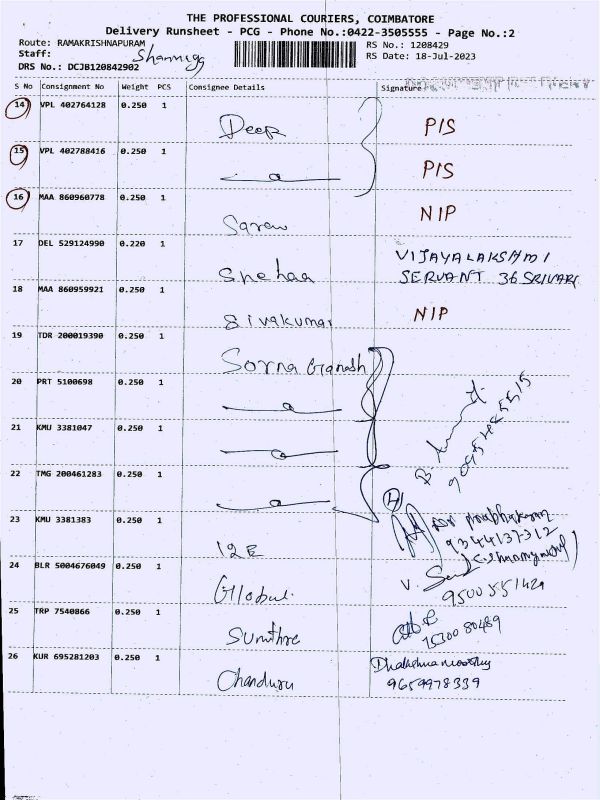 THE PROFESSIONAL COURIERS, COIMBATORE
Delivery Runsheet - PCG - Phone No.:0422-3505555 - Page No.:2
Route: RAMAKRISHNAPURAM
RS No.: 1208429
Staff:
RS Date: 18-Jul-2023
DRS No.: DCJB120842902
S No Consignment No Weight PCS Consignee Details Signature
14 VPL 402764128 0.250 1 Deep PIS
15 VPL 402788416 0.250 1 PIS
16 MAA 860960778 0.250 1 Saran NIP
17 DEL 529124990 0.220 1 Snehaa VIJAYALAKSHMI
SERVANT 36 SRIVARI
18 MAA 860959921 0.250 1 Sivakumar NIP
19 TDR 200019390 0.250 1 Sorna Ganash
20 PRT 5100698 0.250 1
21 KMU 3381047 0.250 1
22 TMG 200461283 0.250 1
4
23 KMU 3381383 0.250 1 I2E
9344137312
24 BLR 5004676049 0.250 1 Global
9500551429
25 TRP 7540866 0.250 1 Sumithre
7530080489
26 KUR 695281203 0.250 1 Chanduru
9659978339